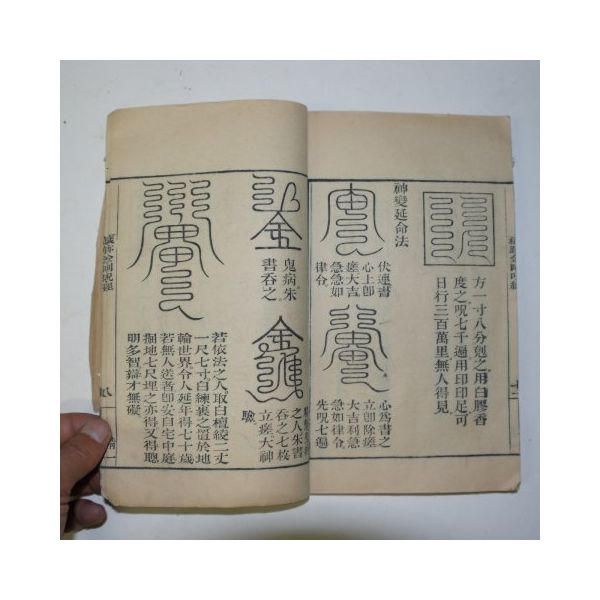 方一寸八分剋之用白膠香
度之呪七千遍用印印足可
日行三百萬里無人得見
神變延命法
伏連書
心上卽
瘥大吉
急急如
律令
心爲書之
立卽除瘥
大吉利急
急如律令
先呪七遍
鬼病朱
書吞之
之人朱書
吞之七枚
立瘥大神
驗
若依法之人取白檀綾二丈
一尺七寸白練裹之置於地
輪世界令人延年得七十歲
若無人送者卽安自宅中庭
掘地七尺埋之亦得又得聰
明多智辯才無礙